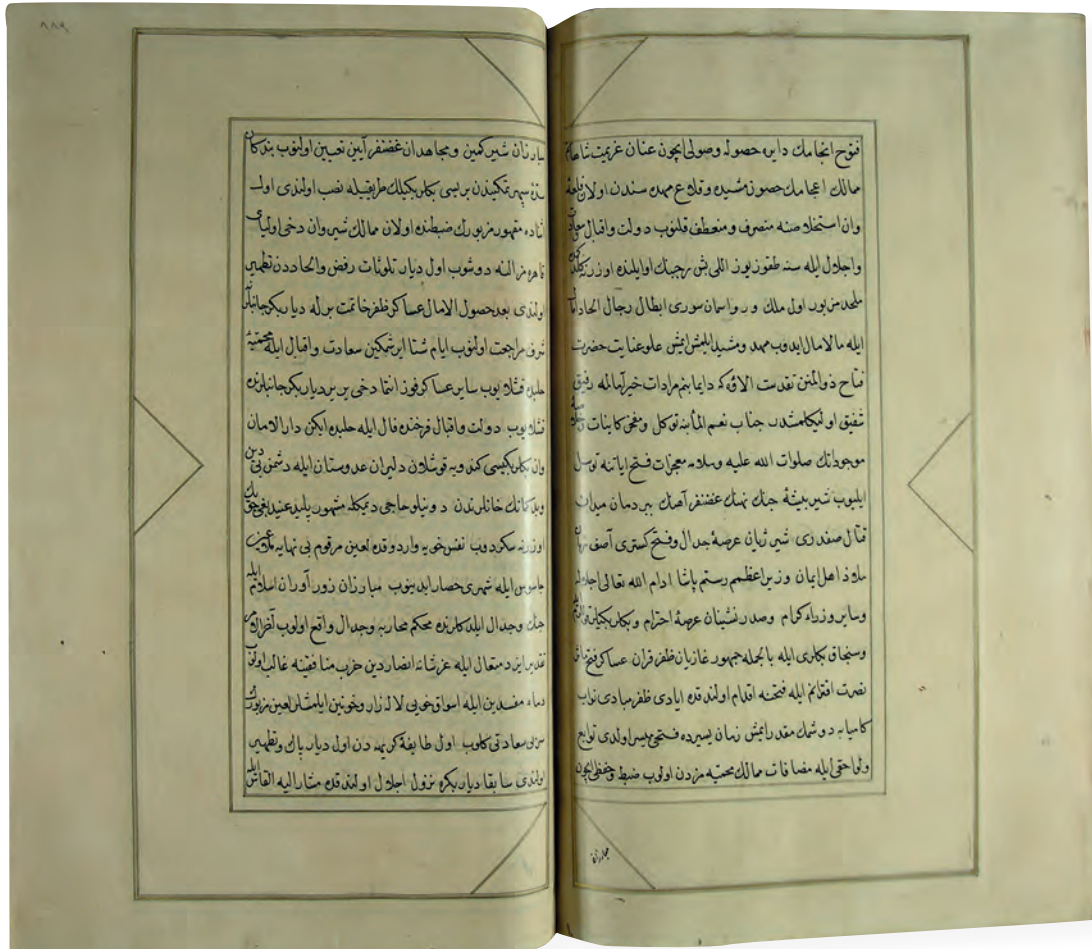 فتوح انجامك دایره حصوله وصولی ایچون عنان عزیمت شاهانم
ممالك اعجامك حصون مشیده و قلاع ممهده سندن اولان قلعهٔ
وان استخلاصنه متصرف و منعطف قلنوب دولت و اقبال و سعادت
و اجلال ایله سنه طقوز یوز اللی بش رجبنك اوایلنده اوزرنه
ملحد مزبور اول ملك و سوری ابطال رجال الحاد
ایله مالامال ایدوب ممهد و مشید ایلمش ایمش علو عنایت حضرت
فتاح ذوالمنن تقدست الاؤه که دایما بنم مرادات خیر آمالمه رفیق
شفیق اولیکلمشدر جناب نعم المأبنه توکل و مفخر کاینات
موجوداتك صلوات الله علیه وسلامه معجزات فتح ایاتنه توسل
ایلیوب شیر بیشهٔ جنك نهنك غضنفر آهنك ببر دمان میدان
قتال صفدری شیر ژیان عرصهٔ جدال و فتح کستری آصف
ملاذ اهل ایمان وزیر اعظمم رستم پاشا ادام الله تعالی اجلاله
و سایر وزراء کرام و صدر نشینان عرصهٔ احترام و بکلر بکیلر
و سنجاق بکلری ایله بالجمله جمهور غازیان ظفر قران عساکر فتح
نصرت اقترانم ایله فتحنه اقدام اولندقده ایادی ظفر مبادی نواب
کامیابه دوشمك مقدر ایمش زمان یسیرده فتحی میسر اولدی توابع
و لواحقی ایله مضافات ممالك محمیه مزدن اولوب ضبط و حفظی ایچون
مبارزان
مبارزان شیر کمین و مجاهدان غضنفر آیین تعیین اولنوب بندکان
سدهٔ سپهر تمکیندن بریسی بکلربکیلك طریقیله نصب اولندی اول
اثناده مقهور مزبورك ضبطنده اولان ممالك شیروان دخی اولیای
قاهره مز الینه دوشوب اول دیار تلوثات رفض و الحاددن تطهیر
اولندی بعد حصول الامال عساکر ظفر خاتمت برله دیاربکر جانبلرینه
شرف مراجعت اولنوب ایام شتا ایرشمکین سعادت و اقبال ایله محمیهٔ
حلبده قشلایوب سایر عساکر فوز انتما دخی یر یر دیاربکر جانبلرنده
قشلایوب دولت و اقبال فرخنده فال ایله حلبده ایکن دار الامان
وان بکلربکیسی کندویه قوشلان دلیران عدوستان ایله دشمن بی دین
خانلرندن دونیلو حاجی دیمکله مشهور پلید عنید
اوزرنه سکردوب نفس خویه واردوقده لعین مرقوم بی نهایه
ایله شهری حصار ایدینوب مبارزان زورآوران اسلام ایله
جنك و جدال ایلدکلرنده محکم محاربه و جدال واقع اولوب آخر الامر
تقدیر ایزد متعال ایله عز شانه انصار دین حزب منافقینه غالب اولوب
دماء مفسدین ایله اسواق خویی لاله زار و خونین ایلمشلر لعین مزبورك
سر بی سعادتی کلوب اول طایفهٔ کریهه دن اول دیار پاك و تطهیر
اولندی سابقا دیاربکره نزول اجلال اولندقده مشار الیه القاس